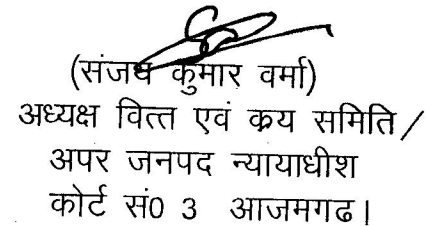 (संजय कुमार वर्मा)
अध्यक्ष वित्त एवं क्रय समिति/
अपर जनपद न्यायाधीश
कोर्ट सं0 3 आजमगढ।